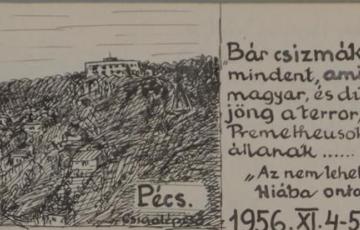 Pécs.
„Bár csizmák
mindent, ami
magyar, és dü
jöng a terror,
Premetheusok
állanak ......
„Az nem lehet
Hiába onto
1956. XI. 4-5